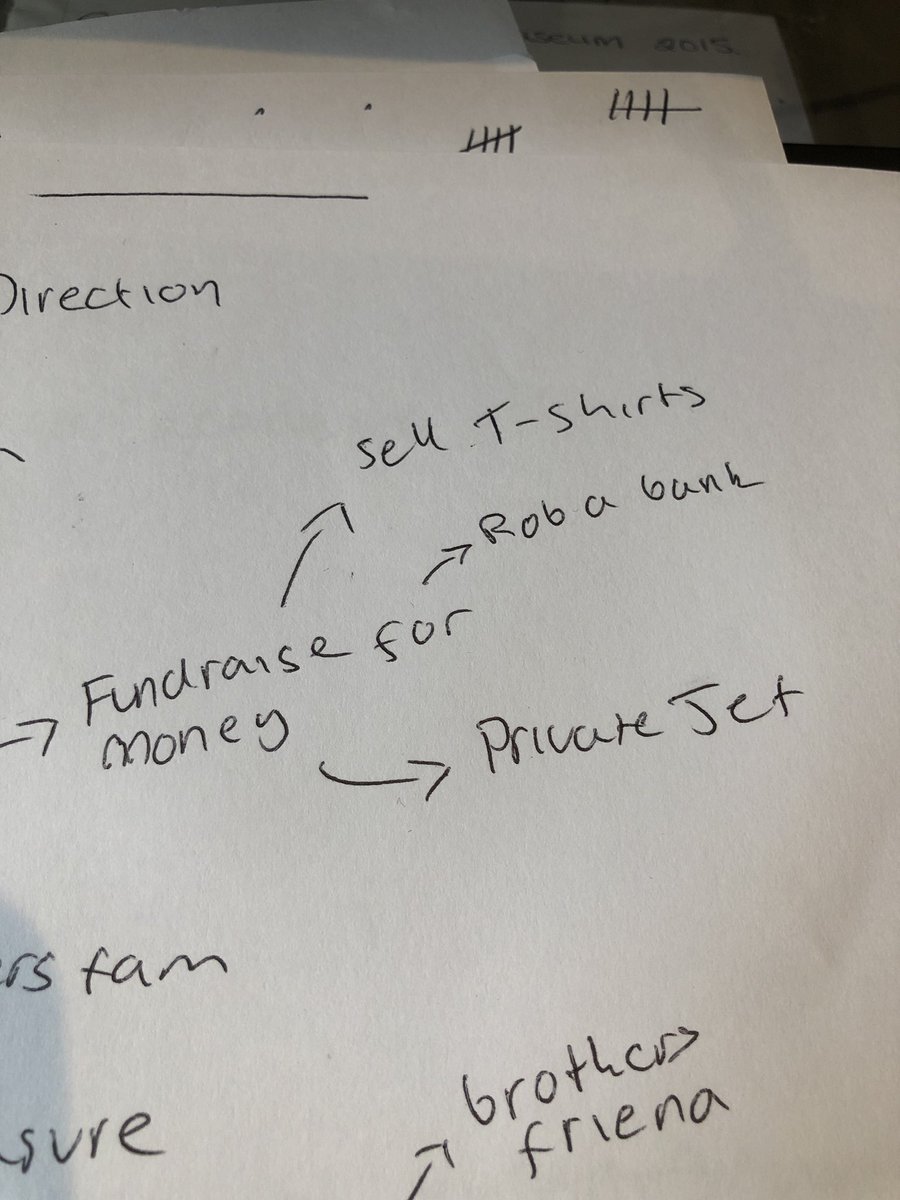 2015
Direction
sell T-shirts
Rob a bank
Fundraise for
money
Private Jet
fam
sure
brothers
friend